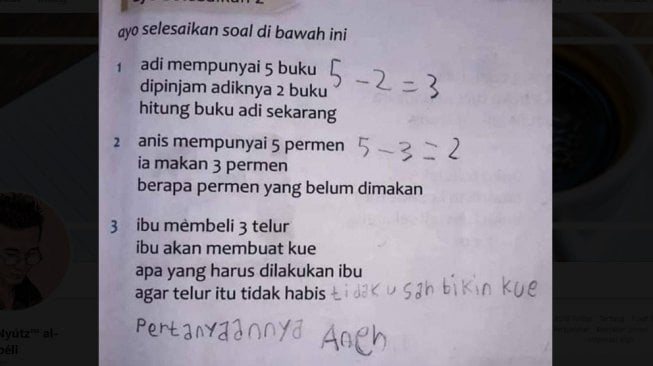 ayo selesaikan soal di bawah ini
1 adi mempunyai 5 buku 5 - 2 = 3
dipinjam adiknya 2 buku
hitung buku adi sekarang
2 anis mempunyai 5 permen 5 - 3 = 2
ia makan 3 permen
berapa permen yang belum dimakan
3 ibu membeli 3 telur
ibu akan membuat kue
apa yang harus dilakukan ibu
agar telur itu tidak habis tidak usah bikin kue
Pertanyaannya Aneh
Nyútz™ al-
béli